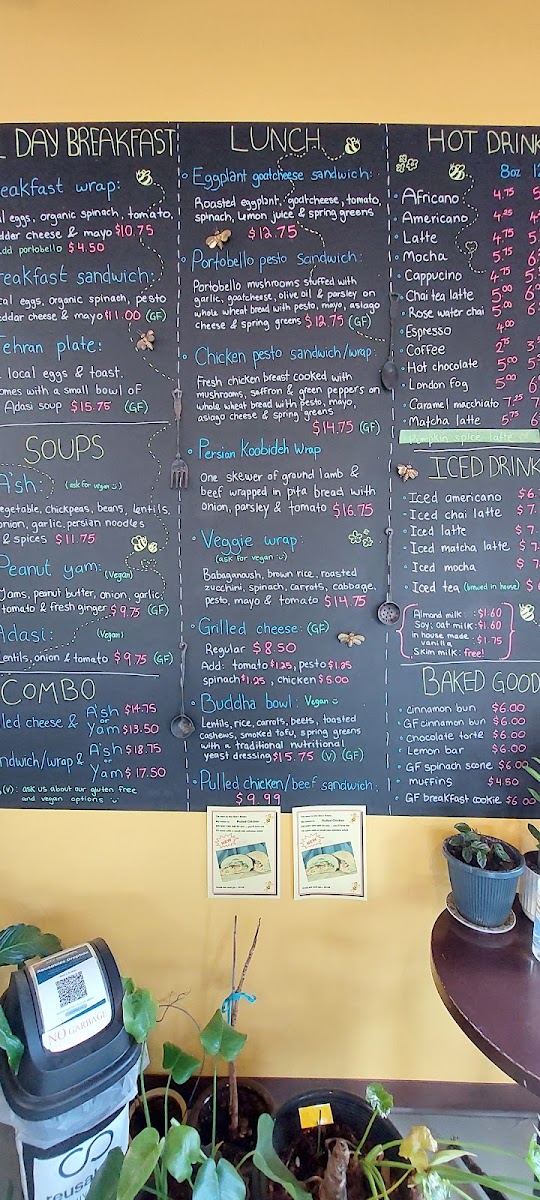 DAY BREAKFAST
eakfast wrap:
eggs, organic spinach, tomato,
dder cheese & mayo $10.75
add portobello $4.50
reakfast sandwich:
cal eggs, organic spinach, pesto
eddar cheese & mayo $11.00 (GF)
Tehran plate:
local eggs & toast.
omes with a small bowl of
Adasi soup $15.75 (GF)
SOUPS
A'sh: (ask for vegan)
vegetable, chickpeas, beans, lentils,
onion, garlic, persian noodles
& spices $11.75
Peanut yam: (Vegan)
Yams, peanut butter, onion, garlic,
tomato & fresh ginger $9.75 (GF)
Adasi: (Vegan)
Lentils, onion & tomato $9.75 (GF)
COMBO
led cheese & A'sh $14.75
or
Yam $13.50
andwich/wrap & A'sh $18.75
or
Yam $17.50
(V) : ask us about our gluten free
and vegan options
LUNCH
Eggplant goatcheese sandwich:
Roasted eggplant, goatcheese, tomato,
spinach, Lemon juice & spring greens
$12.75
Portobello pesto Sandwich:
Portobello mushrooms stuffed with
garlic, goatcheese, olive oil & parsley on
whole wheat bread with pesto, mayo, asiago
cheese & spring greens $12.75 (GF)
Chicken pesto sandwich/wrap:
Fresh chicken breast cooked with
mushrooms, saffron & green peppers on
whole wheat bread with pesto, mayo,
asiago cheese & spring greens
$14.75 (GF)
Persian Koobideh Wrap
One skewer of ground lamb &
beef wrapped in pita bread with
onion, parsley & tomato $16.75
Veggie wrap:
(ask for vegan)
Babaganoush, brown rice, roasted
zucchini, spinach, carrots, cabbage,
pesto, mayo & tomato $14.75
Grilled cheese: (GF)
Regular $8.50
Add: tomato $1.25, pesto $1.25
spinach $1.25, chicken $5.00
Buddha bowl: Vegan
Lentils, rice, carrots, beets, toasted
cashews, smoked tofu, spring greens
with a traditional nutritional
yeast dressing $15.75 (V) (GF)
Pulled chicken/beef sandwich:
$9.99
HOT DRINK
8oz 12
Africano 4.75 5
Americano 4.25 4
Latte 5.75 6
Mocha 5.75 6
Cappucino 4.75 5
Chai tea latte 5.00 6
Rose water chai 5.00 6
Espresso 4.00
Coffee 2.75 3
Hot chocolate 5.00 5
London fog 5.00 6
Caramel macchiato 7.25 7
Matcha latte 5.75 6
Pumpkin spice latte
ICED DRINK
Iced americano $6.
Iced chai latte $7.
Iced latte $7.
Iced matcha latte $7.
Iced mocha $7.
Iced tea (brewed in house) $
Almond milk : $1.60
Soy, oat milk : $1.60
in house made
vanilla : $1.75
Skim milk : free!
BAKED GOOD
cinnamon bun $6.00
GF cinnamon bun $6.00
chocolate torte $6.00
Lemon bar $6.00
GF spinach scone $6.00
muffins $4.50
GF breakfast cookie $6.00
Pulled Chicken
NO GARBAGE
reusab